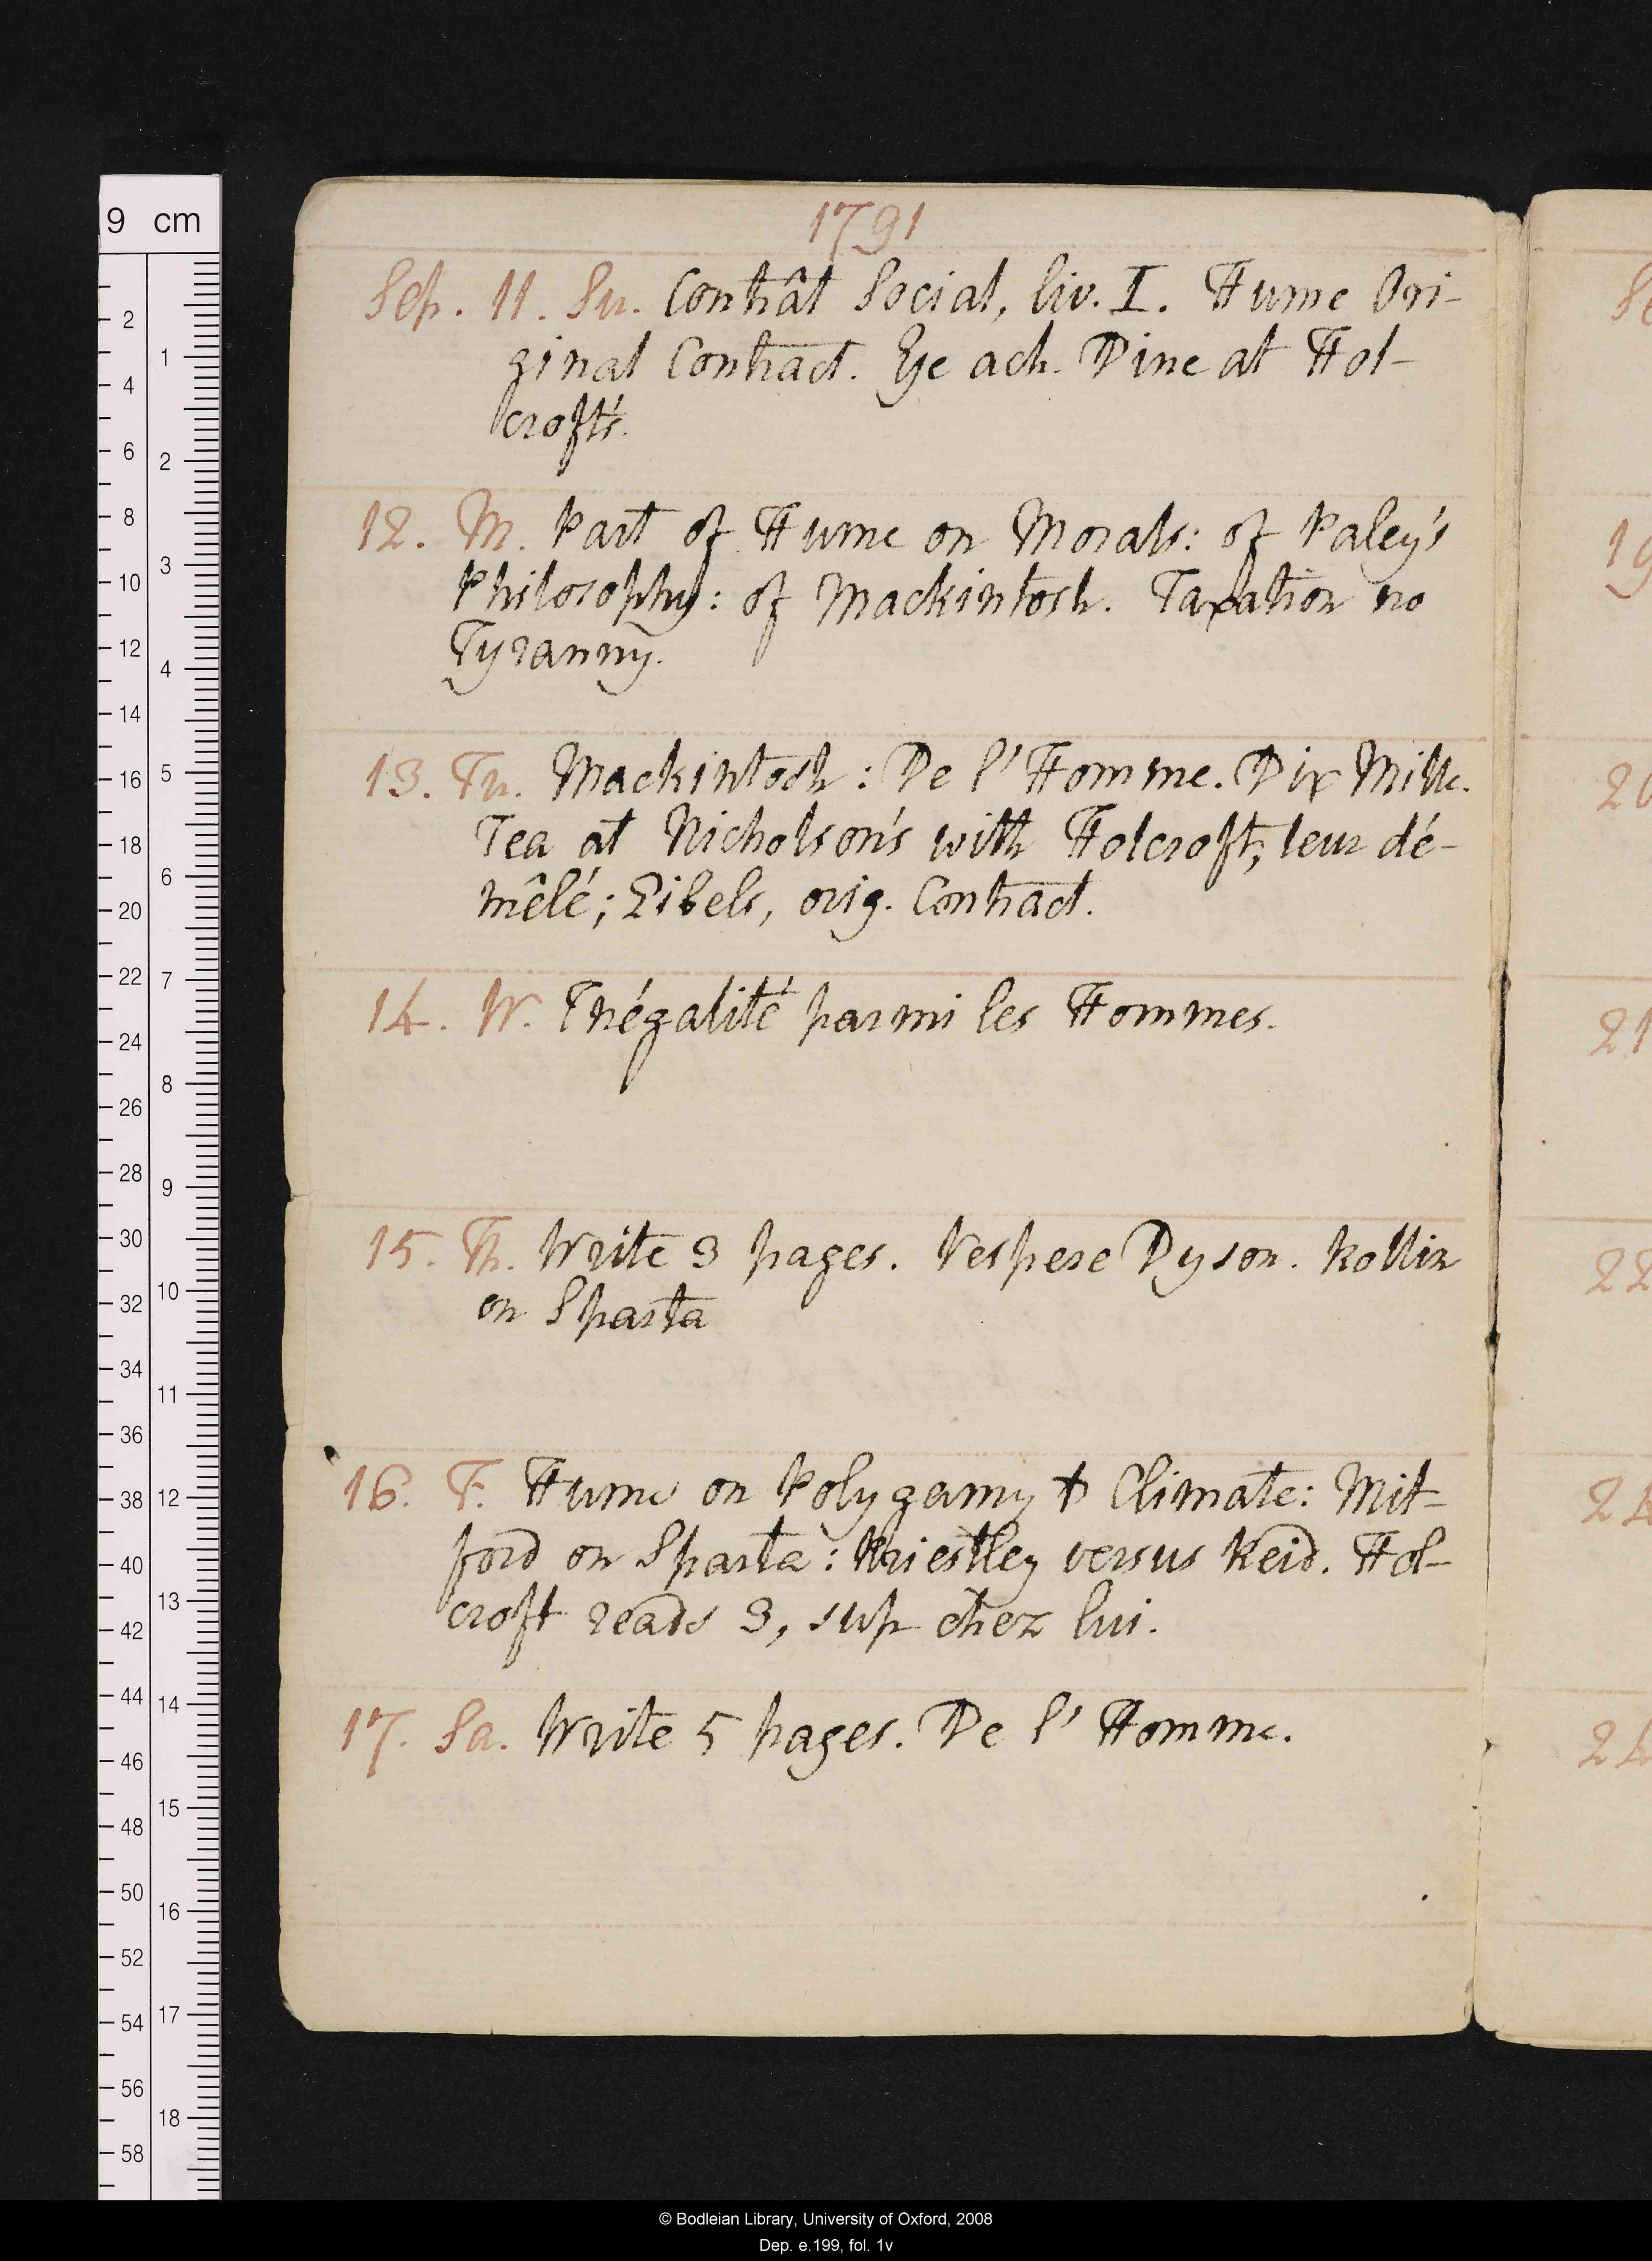 1791
Sep. 11. Su. Contrât Social, liv. I. Hume Ori-
ginal Contract. Eye ach. Dine at Hol-
croft's.
12. M. Part of Hume on Morals: of Paley's
Philosophy: of Mackintosh. Taxation no
Tyranny.
13. Tu. Mackintosh: De l'Homme. Dix Mille.
Tea at Nicholson's with Holcroft; leur dé-
mêlé; Libels, orig. Contract.
14. W. Inégalité parmi les Hommes.
15. Th. Write 3 pages. Vespere Dyson. Rollin
on Sparta
16. F. Hume on Polygamy & Climate: Mit-
ford on Sparta: Priestley versus Reid. Hol-
croft reads 3, sup chez lui.
17. Sa. Write 5 pages. De l'Homme.
9 cm
2
4
6
8
10
12
14
16
18
20
22
24
26
28
30
32
34
36
38
40
42
44
46
48
50
52
54
56
58
1
2
3
4
5
6
7
8
9
10
11
12
13
14
15
16
17
18
19
20
21
22
© Bodleian Library, University of Oxford, 2008
Dep. e.199, fol. 1v